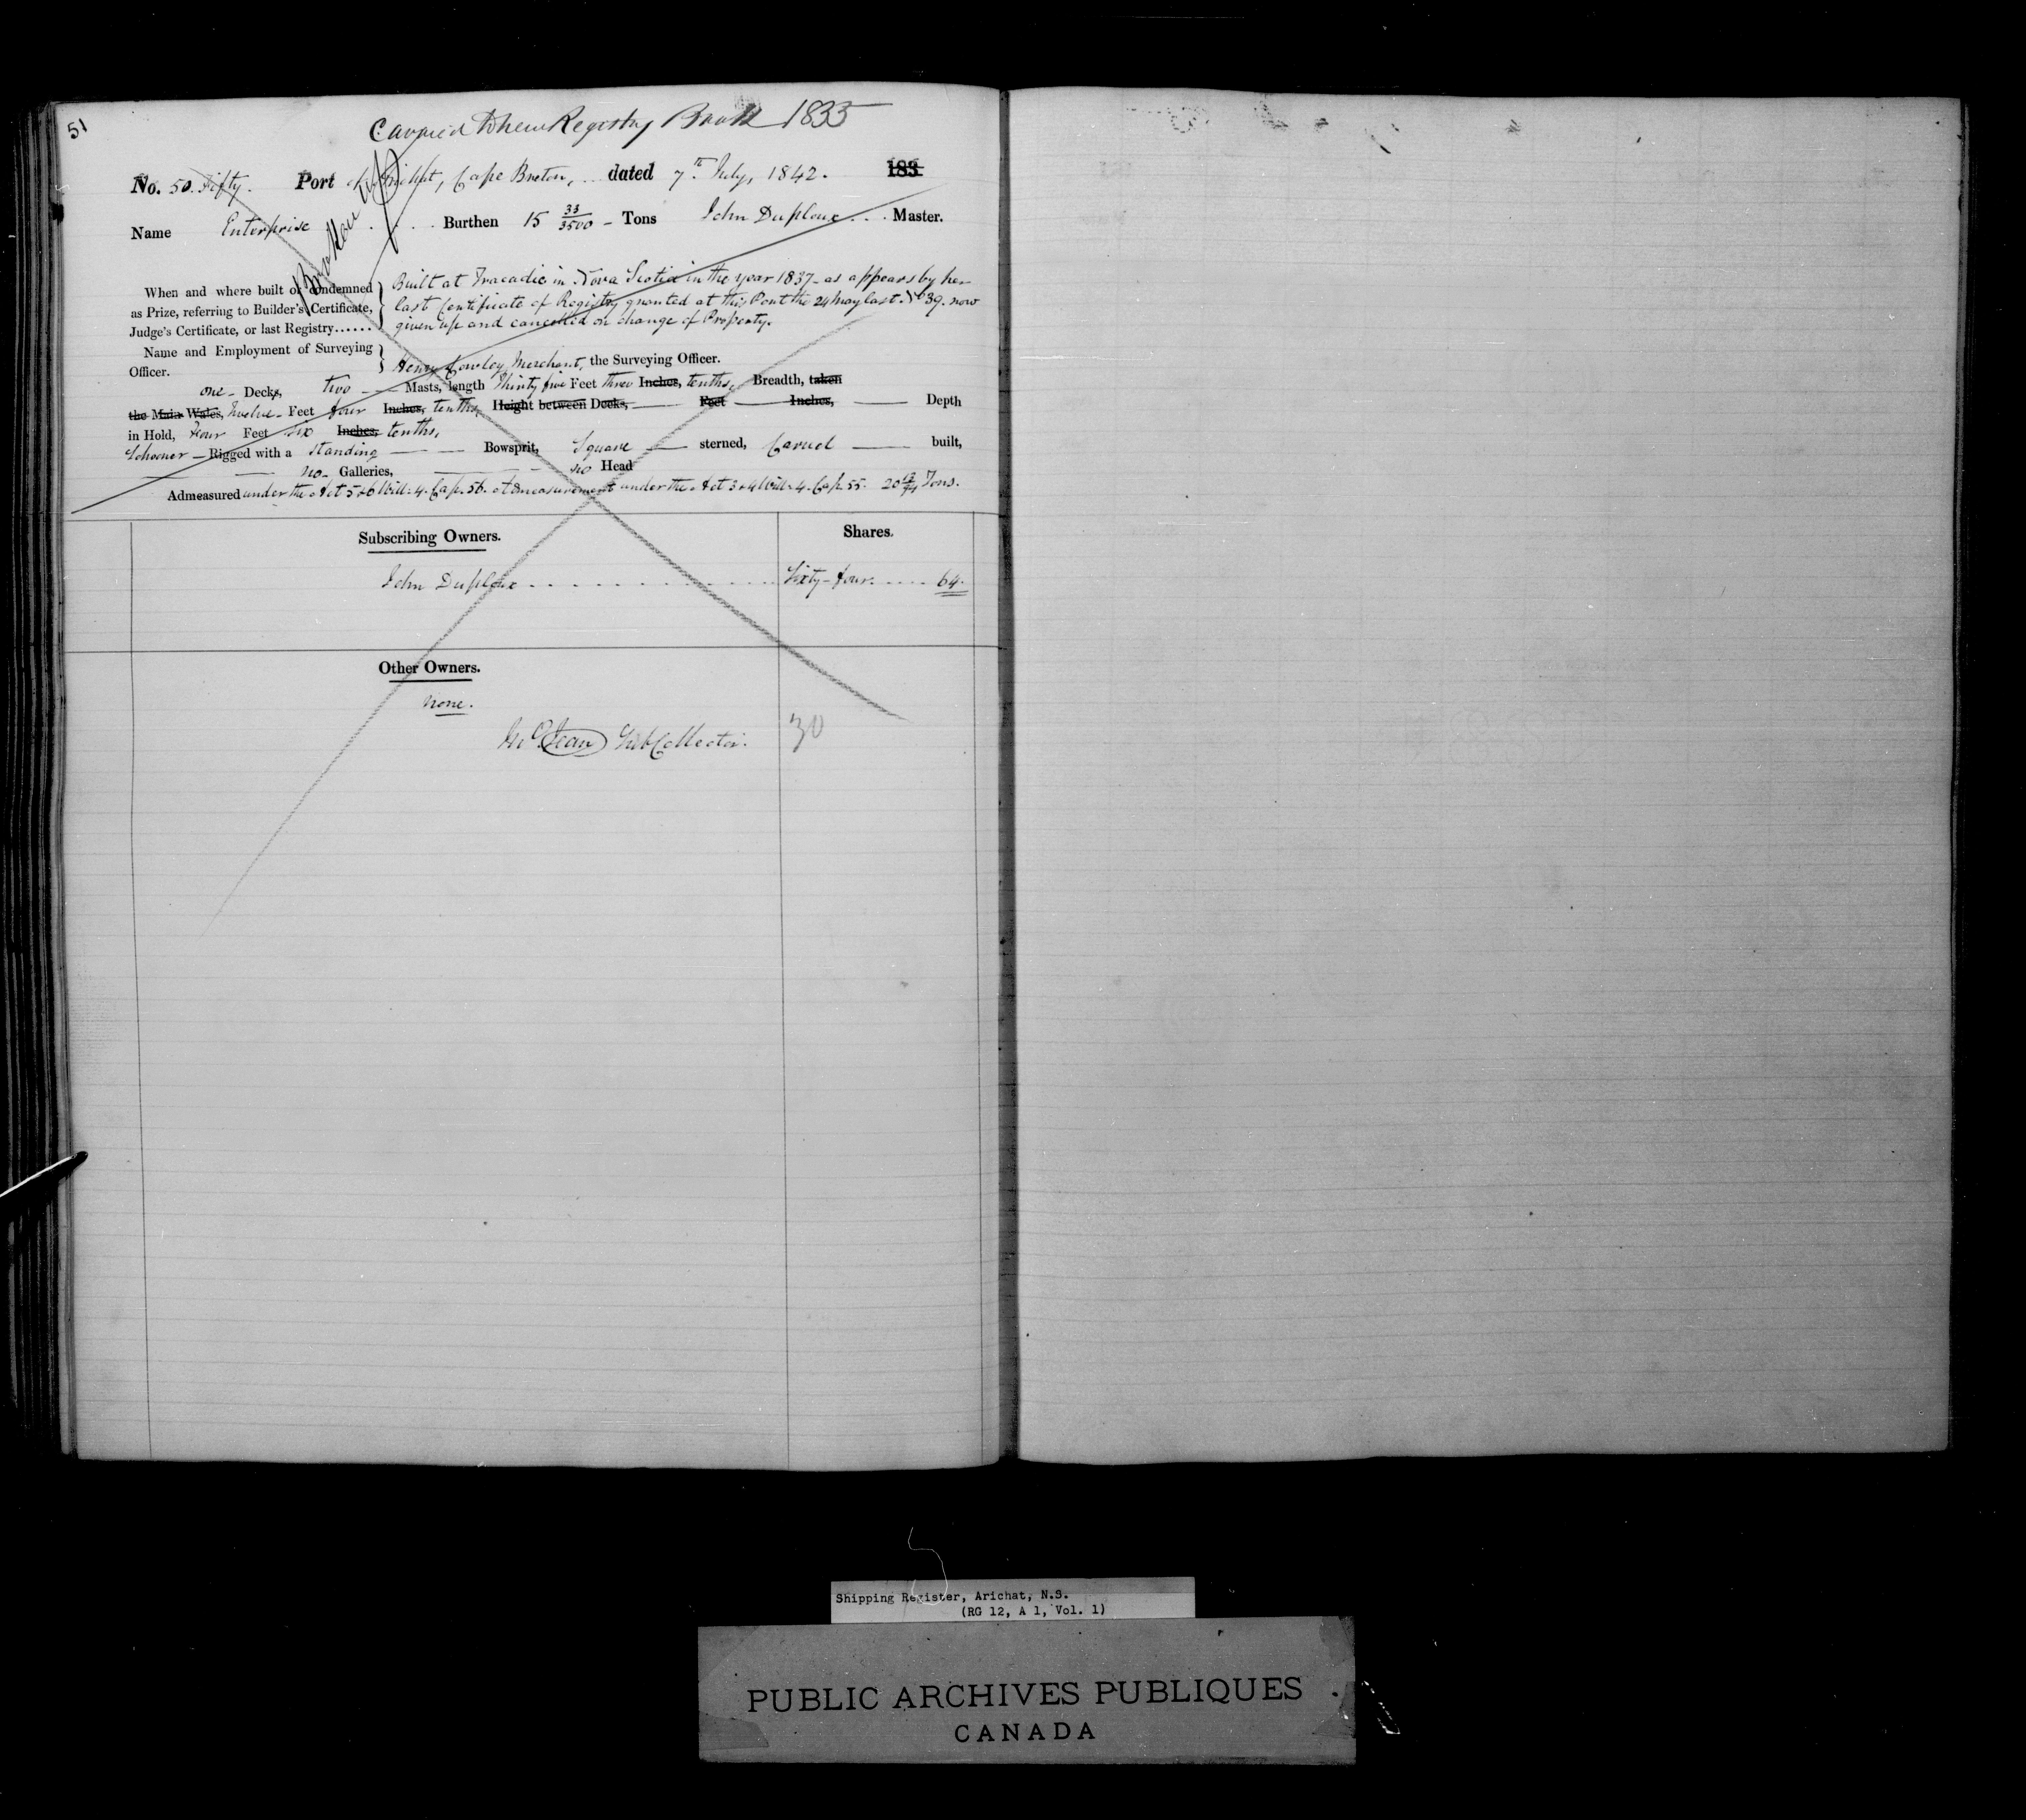 51
Carried to new Registry Book 1855
No. 50. Fifty. Port of Arichat, Cape Breton, dated 7th July, 1842. 183
Broken up
Name Enterprise Burthen 15 33/3500 Tons John Duploux Master.
When and where built or condemned
as Prize, referring to Builder's Certificate,
Judge's Certificate, or last Registry......
Built at Tracadie in Nova Scotia in the year 1837 as appears by her
last Certificate of Registry granted at this Port the 24 May last. No 39. now
given up and cancelled on change of Property.
Name and Employment of Surveying
Officer.
Henry Cowley, Merchant, the Surveying Officer.
one Decks, two Masts, length Thirty five Feet three Inches, tenths, Breadth, taken
the Main Wales, Twelve Feet four Inches, tenths, Height between Decks, Feet Inches, Depth
in Hold, four Feet six Inches, tenths,
Schooner Rigged with a Standing Bowsprit, Square sterned, Carvel built,
no Galleries, no Head
Admeasured under the Act 5 & 6 Will: 4. Cap. 56. Admeasurement under the Act 3 & 4 Will: 4. Cap. 55. 20 Tons.
Subscribing Owners. Shares.
John Duploux Sixty-four 64.
Other Owners.
none.
Jean SubCollector. 30
Shipping Register, Arichat, N.S.
(RG 12, A 1, Vol. 1)
PUBLIC ARCHIVES PUBLIQUES
CANADA